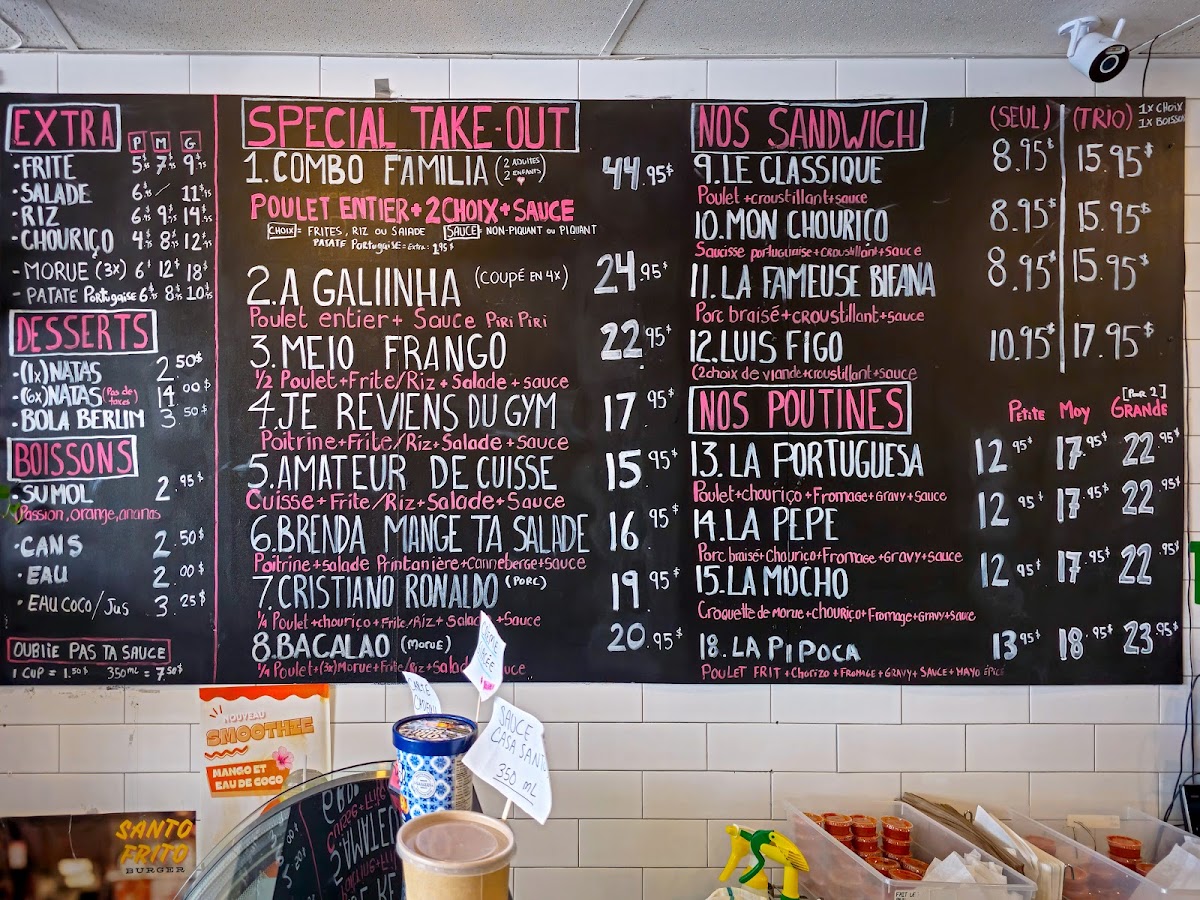 EXTRA
P M G
·FRITE 5.⁹⁵ 7.⁹⁵ 9.⁹⁵
·SALADE 6.⁹⁵ / 11.⁹⁵
·RIZ 6.⁹⁵ 9.⁹⁵ 14.⁹⁵
·CHOURIÇO 4.⁹⁵ 8.⁹⁵ 12.⁹⁵
- MORUE (3x) 6$ 12$ 18$
- PATATE Portugaise 6 8 10
DESSERTS
·(1x) NATAS 2.50$
·(6x) NATAS (Pas de taxes) 14.00$
·BOLA BERLIM 3.50$
BOISSONS
·SUMOL 2.95$
Passion, orange, ananas
·CANS 2.50$
·EAU 2.00$
·EAU COCO/Jus 3.25$
OUBLIE PAS TA SAUCE
1 CUP = 1.50$ 350 mL = 7.50$
SPECIAL TAKE-OUT
1. COMBO FAMILIA (2 ADULTES 2 ENFANTS) 44.95$
POULET ENTIER + 2 CHOIX + SAUCE
CHOIX = FRITES, RIZ OU SALADE SAUCE = NON-PIQUANT OU PIQUANT
PATATE Portugaise = Extra: 1.95$
2. A GALIINHA (COUPÉ EN 4x) 24.95$
Poulet entier + Sauce Piri Piri
3. MEIO FRANGO 22.95$
1/2 Poulet + Frite/Riz + Salade + sauce
4. JE REVIENS DU GYM 17.95$
Poitrine + Frite/Riz + Salade + sauce
5. AMATEUR DE CUISSE 15.95$
Cuisse + Frite/Riz + Salade + Sauce
6. BRENDA MANGE TA SALADE 16.95$
Poitrine + salade Printanière + Canneberge + sauce
7. CRISTIANO RONALDO (PORC) 19.95$
1/4 Poulet + chouriço + Frite/Riz + Salade + sauce
8. BACALAO (MORUE) 20.95$
1/4 Poulet + (3x) Morue + Frite/Riz + Salade
NOS SANDWICH (SEUL) (TRIO) 1x CHOIX
1x BOISSON
9. LE CLASSIQUE 8.95$ 15.95$
Poulet + croustillant + sauce
10. MON CHOURICO 8.95$ 15.95$
Saucisse portuguaise + croustillant + sauce
11. LA FAMEUSE BIFANA 8.95$ 15.95$
Porc braisé + croustillant + sauce
12. LUIS FIGO 10.95$ 17.95$
(2 choix de viande + croustillant + sauce
NOS POUTINES Petite Moy [Pour 2] GRANDE
13. LA PORTUGUESA 12.95$ 17.95$ 22.95$
Poulet + chouriço + Fromage + Gravy + sauce
14. LA PEPE 12.95$ 17.95$ 22.95$
Porc braisé + Chouriço + Fromage + Gravy + sauce
15. LA MOCHO 12.95$ 17.95$ 22.95$
Croquette de Morue + chouriço + Fromage + Gravy + sauce
18. LA PIPOCA 13.95$ 18.95$ 23.95$
POULET FRIT + Chorizo + FROMAGE + GRAVY + SAUCE + MAYO ÉPICÉ
SAUCE
CASA SANTO
350 mL
NOUVEAU
SMOOTHIE
MANGO ET
EAU DE COCO
SANTO
FRITO
BURGER